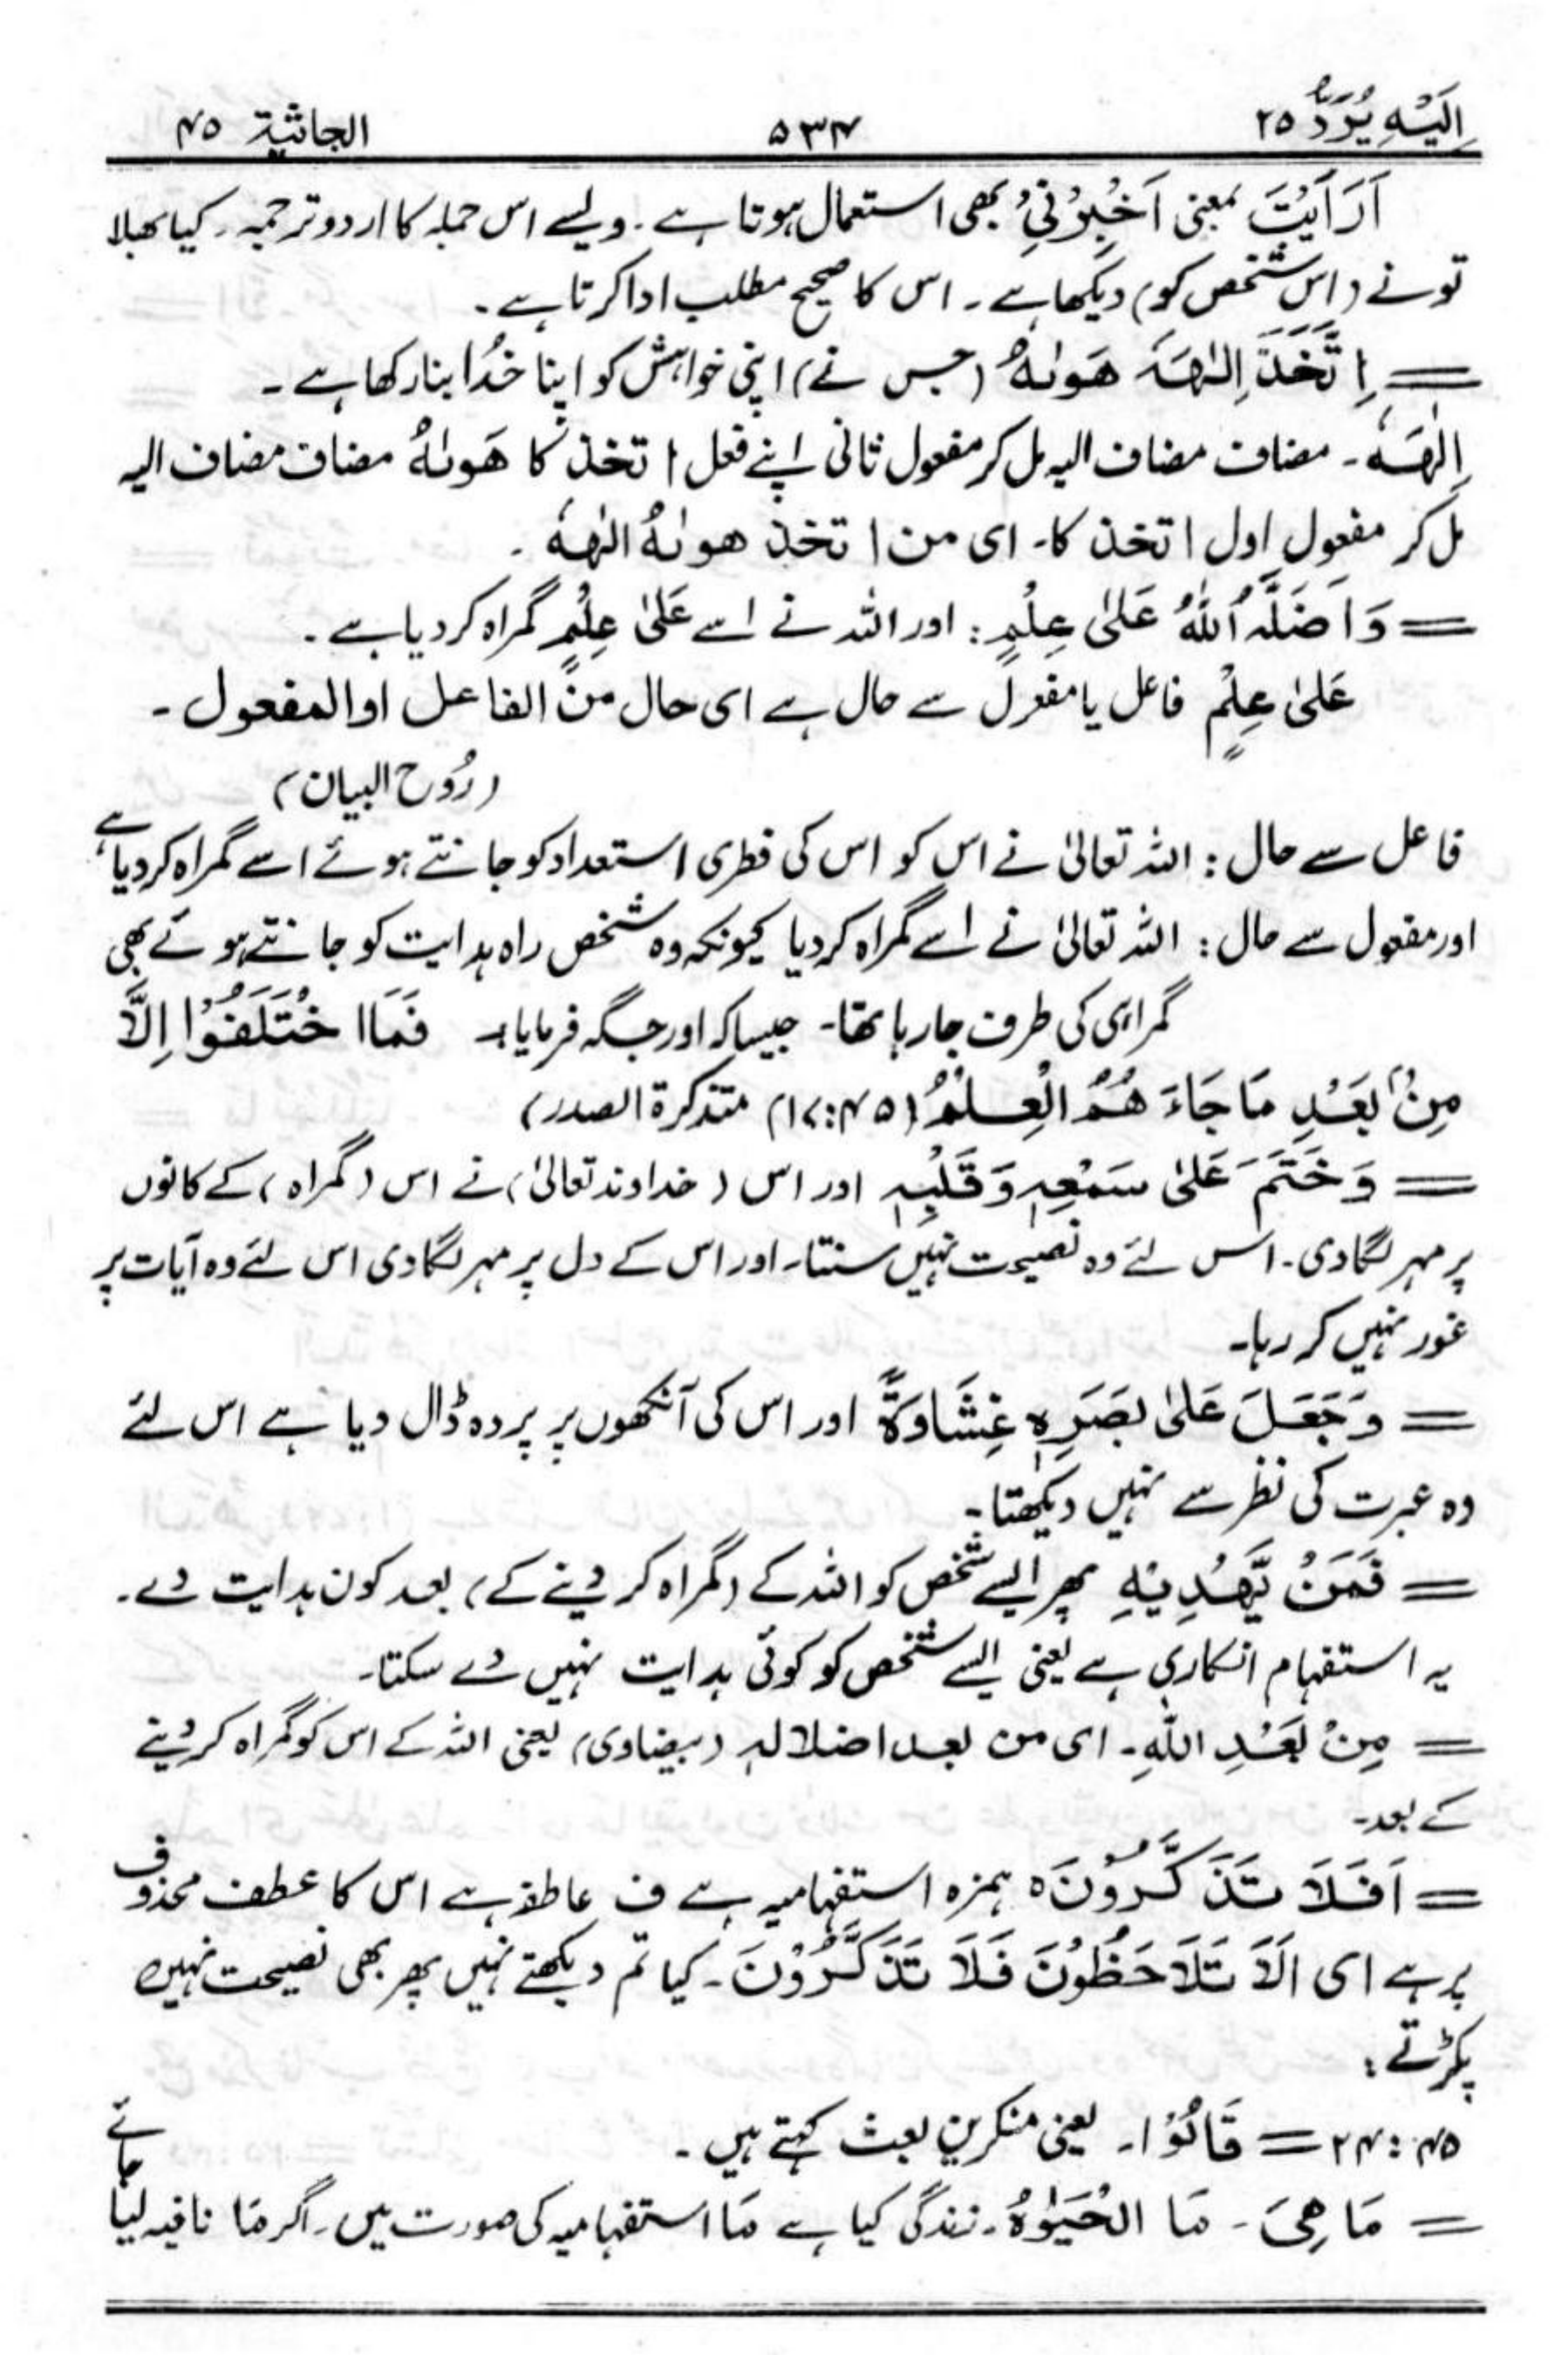 اِلَيْهِ يُرَدُّ ۲۵ ۵۳۴ الجاثية ۴۵
اَرَاَيْتَ بمعنی اَخْبِرُوْنِیْ بھی استعمال ہوتا ہے ۔ ویسے اس جملہ کا اردو ترجمہ ۔ کیا بھلا
تو نے (اس شخص کو) دیکھا ہے ۔ اس کا صحیح مطلب ادا کرتا ہے ۔
= اِتَّخَذَ اِلٰهَهٗ هَوٰىهُ (جس نے) اپنی خواہش کو اپنا خُدا بنا رکھا ہے ۔
اِلٰهَهٗ ۔ مضاف مضاف الیہ مل کر مفعول ثانی اپنے فعل اتخذ کا هَوٰىهُ مضاف مضاف الیہ
مل کر مفعول اول اتخذ کا ۔ ای من اتخذ هوٰىهُ الٰههٗ ۔
= وَاَضَلَّهُ اللّٰهُ عَلٰى عِلْمٍ : اور اللہ نے اسے عَلٰی عِلْمٍ گمراہ کر دیا ہے ۔
عَلٰی عِلْمٍ فاعل یا مفعول سے حال ہے ای حال من الفاعل او المفعول ۔
(رُوح البیان)
فاعل سے حال : اللہ تعالیٰ نے اس کو اس کی فطری استعداد کو جانتے ہوئے اسے گمراہ کر دیا ہے
اور مفعول سے حال : اللہ تعالیٰ نے اسے گمراہ کر دیا کیونکہ وہ شخص راہ ہدایت کو جانتے ہوئے بھی
گمراہی کی طرف جا رہا تھا ۔ جیسا کہ اور جگہ فرمایا :۔ فَمَا اخْتَلَفُوْا اِلَّا
مِنْۢ بَعْدِ مَا جَاءَ هُمُ الْعِلْمُ (۴۵ : ۱۷) متذکرۃ الصدر)
= وَخَتَمَ عَلٰى سَمْعِهٖ وَقَلْبِهٖ اور اس (خداوند تعالیٰ) نے اس (گمراہ) کے کانوں
پر مہر لگا دی ۔ اس لئے وہ نصیحت نہیں سنتا ۔ اور اس کے دل پر مہر لگا دی اس لئے وہ آیات پر
غور نہیں کر رہا ۔
= وَجَعَلَ عَلٰى بَصَرِهٖ غِشَاوَةً اور اس کی آنکھوں پر پردہ ڈال دیا ہے اس لئے
وہ عبرت کی نظر سے نہیں دیکھتا ۔
= فَمَنْ يَّهْدِيْهِ پھر ایسے شخص کو اللہ کے (گمراہ کر دینے کے) بعد کون ہدایت دے ۔
یہ استفہام انکاری ہے یعنی ایسے شخص کو کوئی ہدایت نہیں دے سکتا ۔
= مِنْ بَعْدِ اللّٰهِ ۔ ای من بعد اضلالہ (بیضاوی) یعنی اللہ کے اس کو گمراہ کر دینے
کے بعد ۔
= اَفَلَا تَذَكَّرُوْنَ ہ ہمزہ استفہامیہ ہے ف عاطفہ ہے اس کا عطف محذوف
پر ہے ای اَلَا تَلَاحَظُوْنَ فَلَا تَذَكَّرُوْنَ ۔ کیا تم دیکھتے نہیں پھر بھی نصیحت نہیں
پکڑتے :
۴۵ : ۲۴ = قَالُوْا ۔ یعنی منکرین بعث کہتے ہیں ۔
= مَا هِیَ ۔ مَا الْحَيٰوةُ ۔ زندگی کیا ہے مَا استفہامیہ کی صورت میں ۔ اگر مَا نافیہ لیا جائے